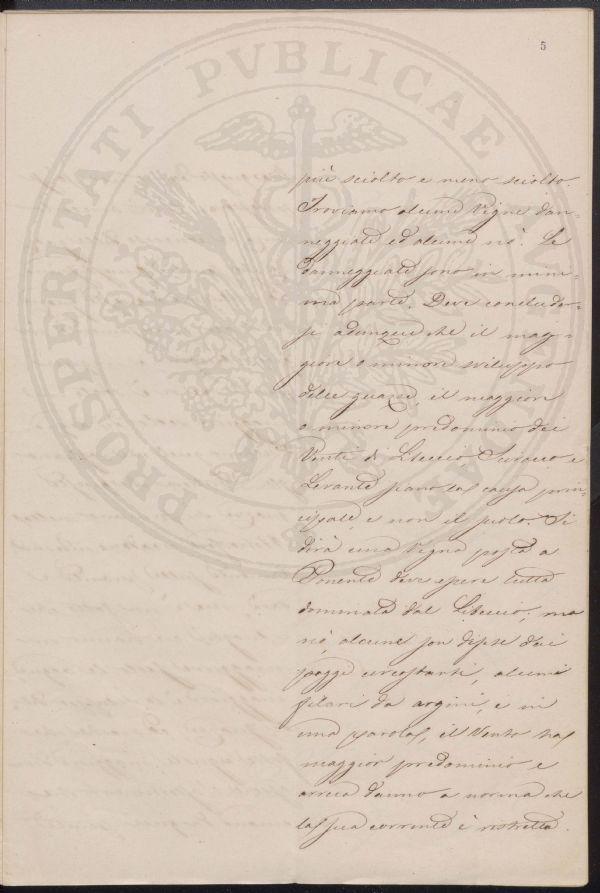 5
PROSPERITATI PVBLICAE
più sciolto e meno sciolto.
Troviamo alcune Vigne dan-
neggiate ed alcune nò. Le
danneggiate sono in mini-
ma parte. Deve concluder-
si adunque che il mag-
giore o minore sviluppo
delle guazze, il maggiore
o minore predominio dei
Venti di Libeccio Scirocco e
Levante siano la causa prin-
cipale, e non il suolo. Si
dirà una Vigna posta a
Ponente deve essere tutta
dominata dal Libeccio; ma
nò, alcune son difese dai
poggi circostanti, alcuni
filari da argini, e in
una parola, il Vento ha
maggior predominio e
arreca danno a norma che
la sua corrente è ristretta.